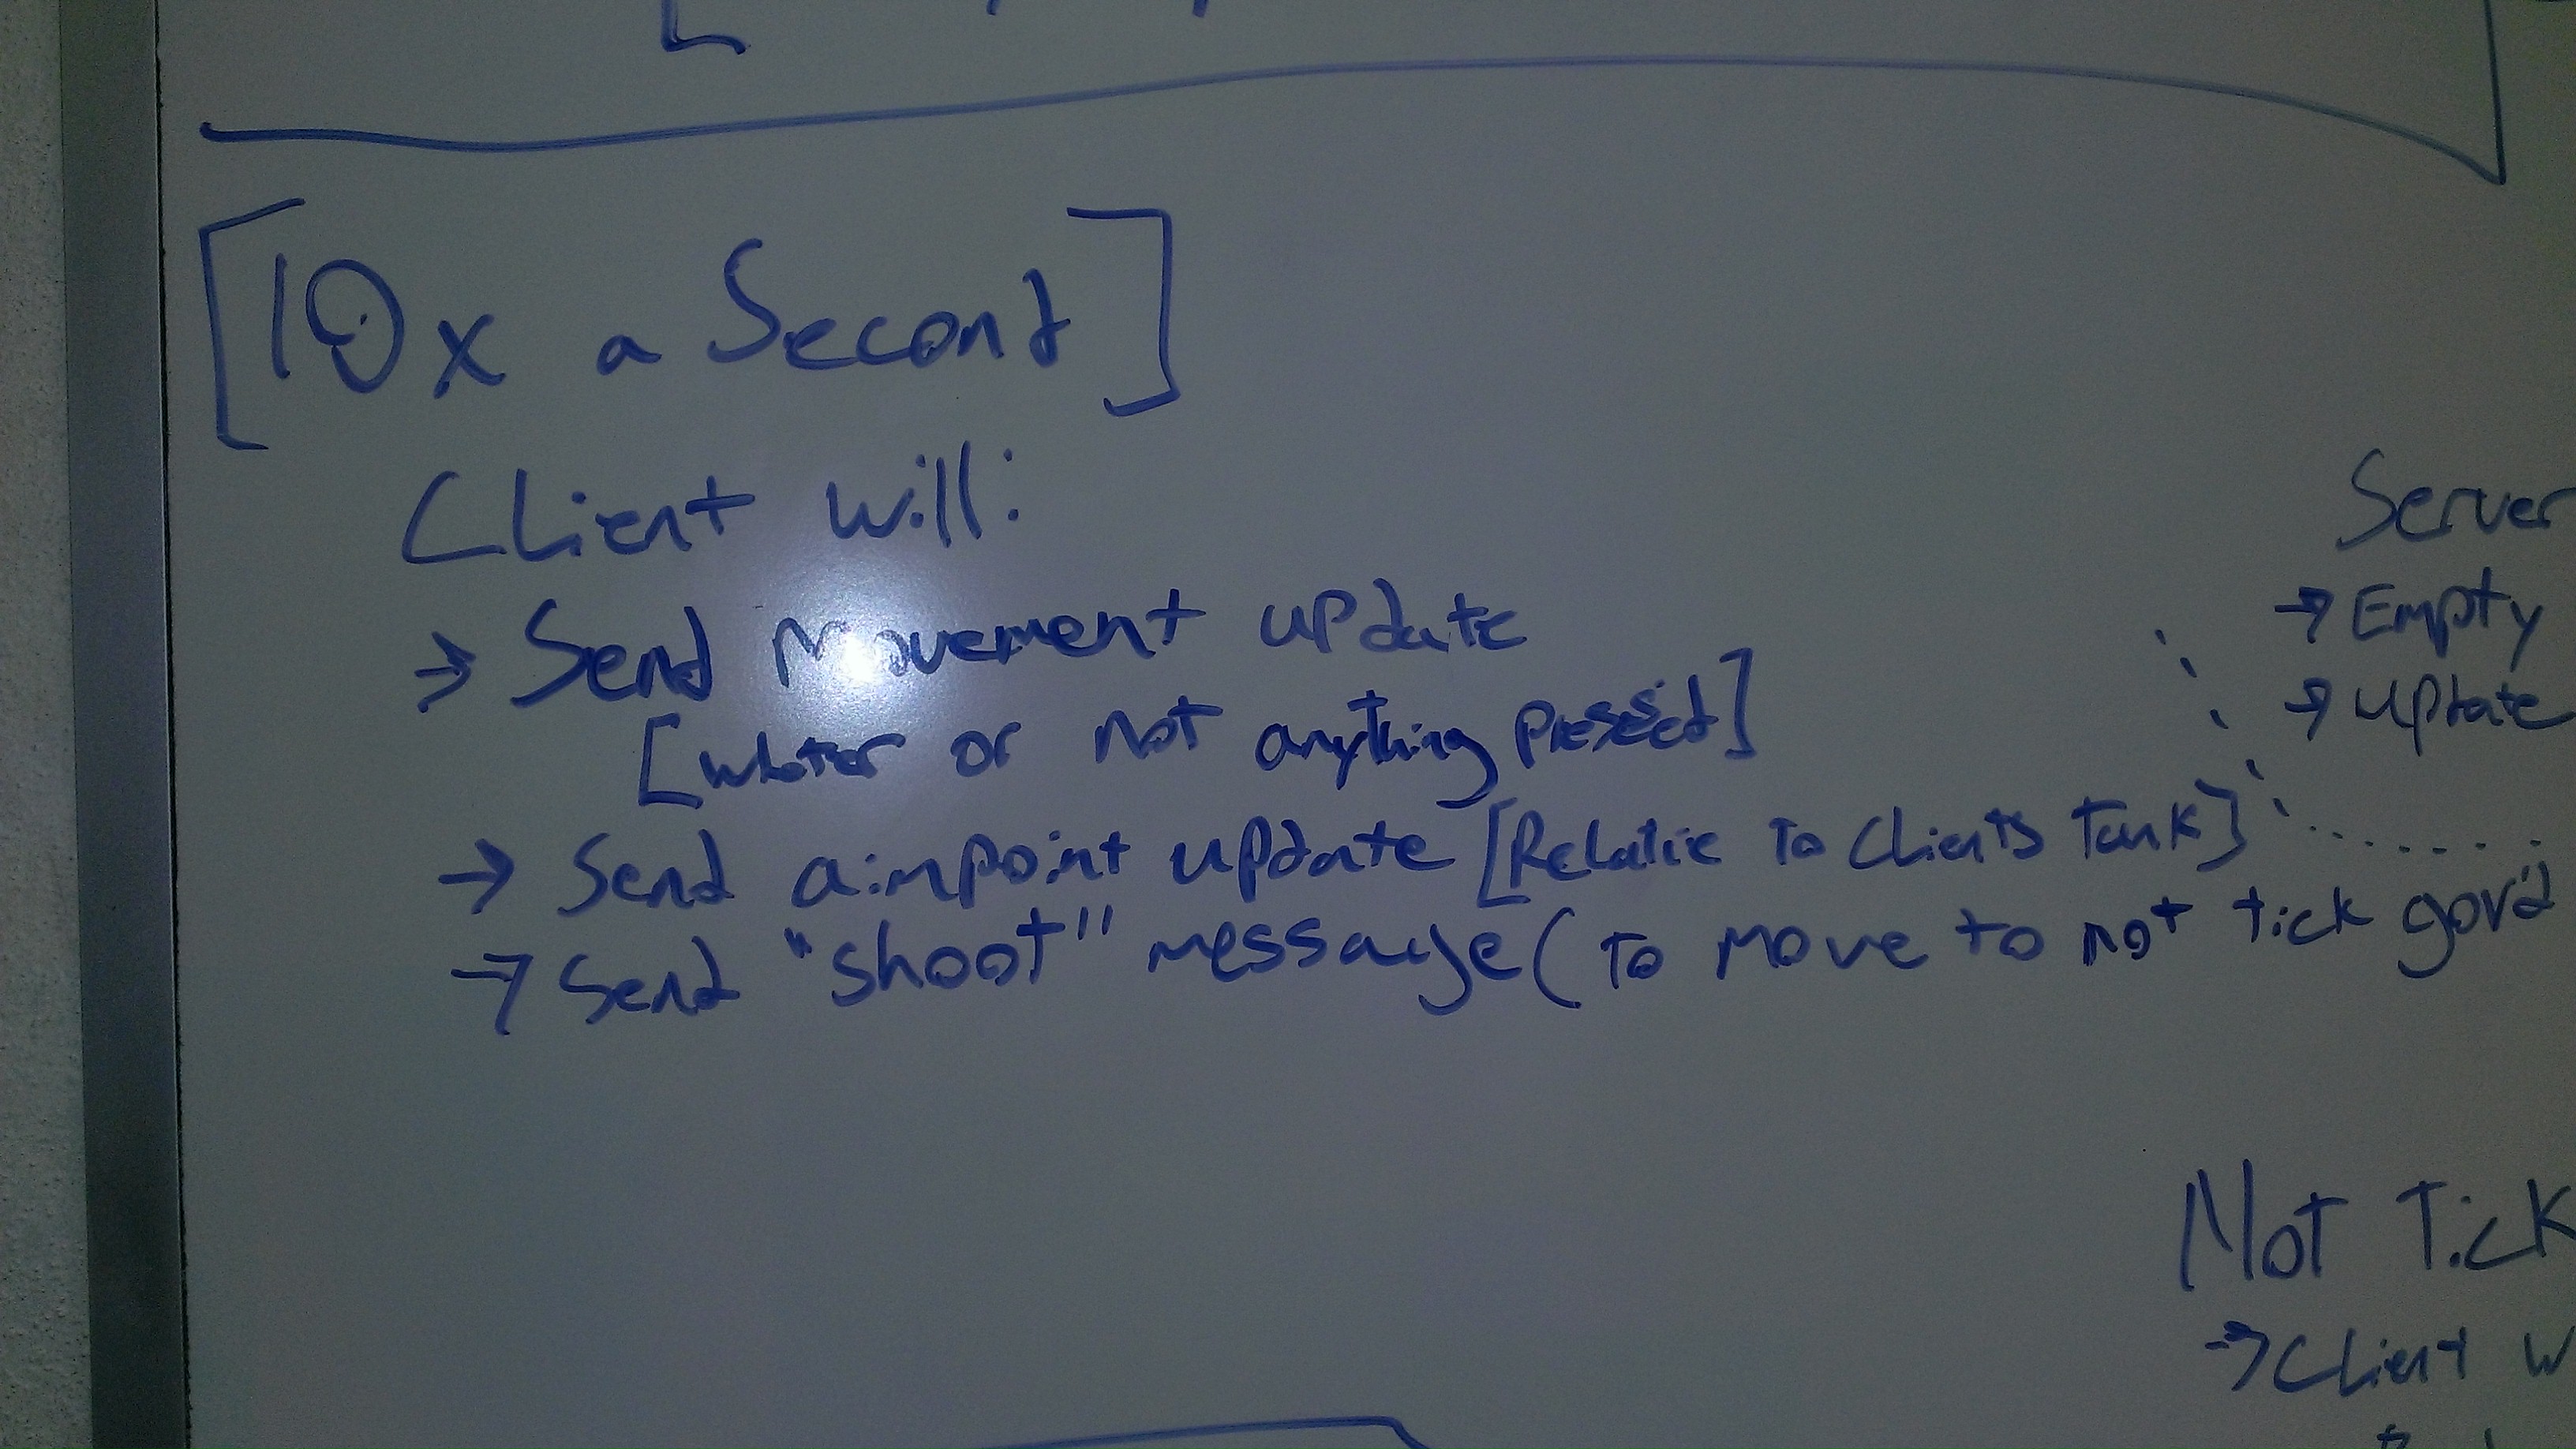 [10x a Second]
Client will:
→ Send Movement update
[whater or not anything pressed]
→ Send aimpoint update [Relatie To Clients Tank]
→ Send "shoot" message ( To move to not tick gov'd
Server
→ Empty
→ Update
Not Tick
→ Client w